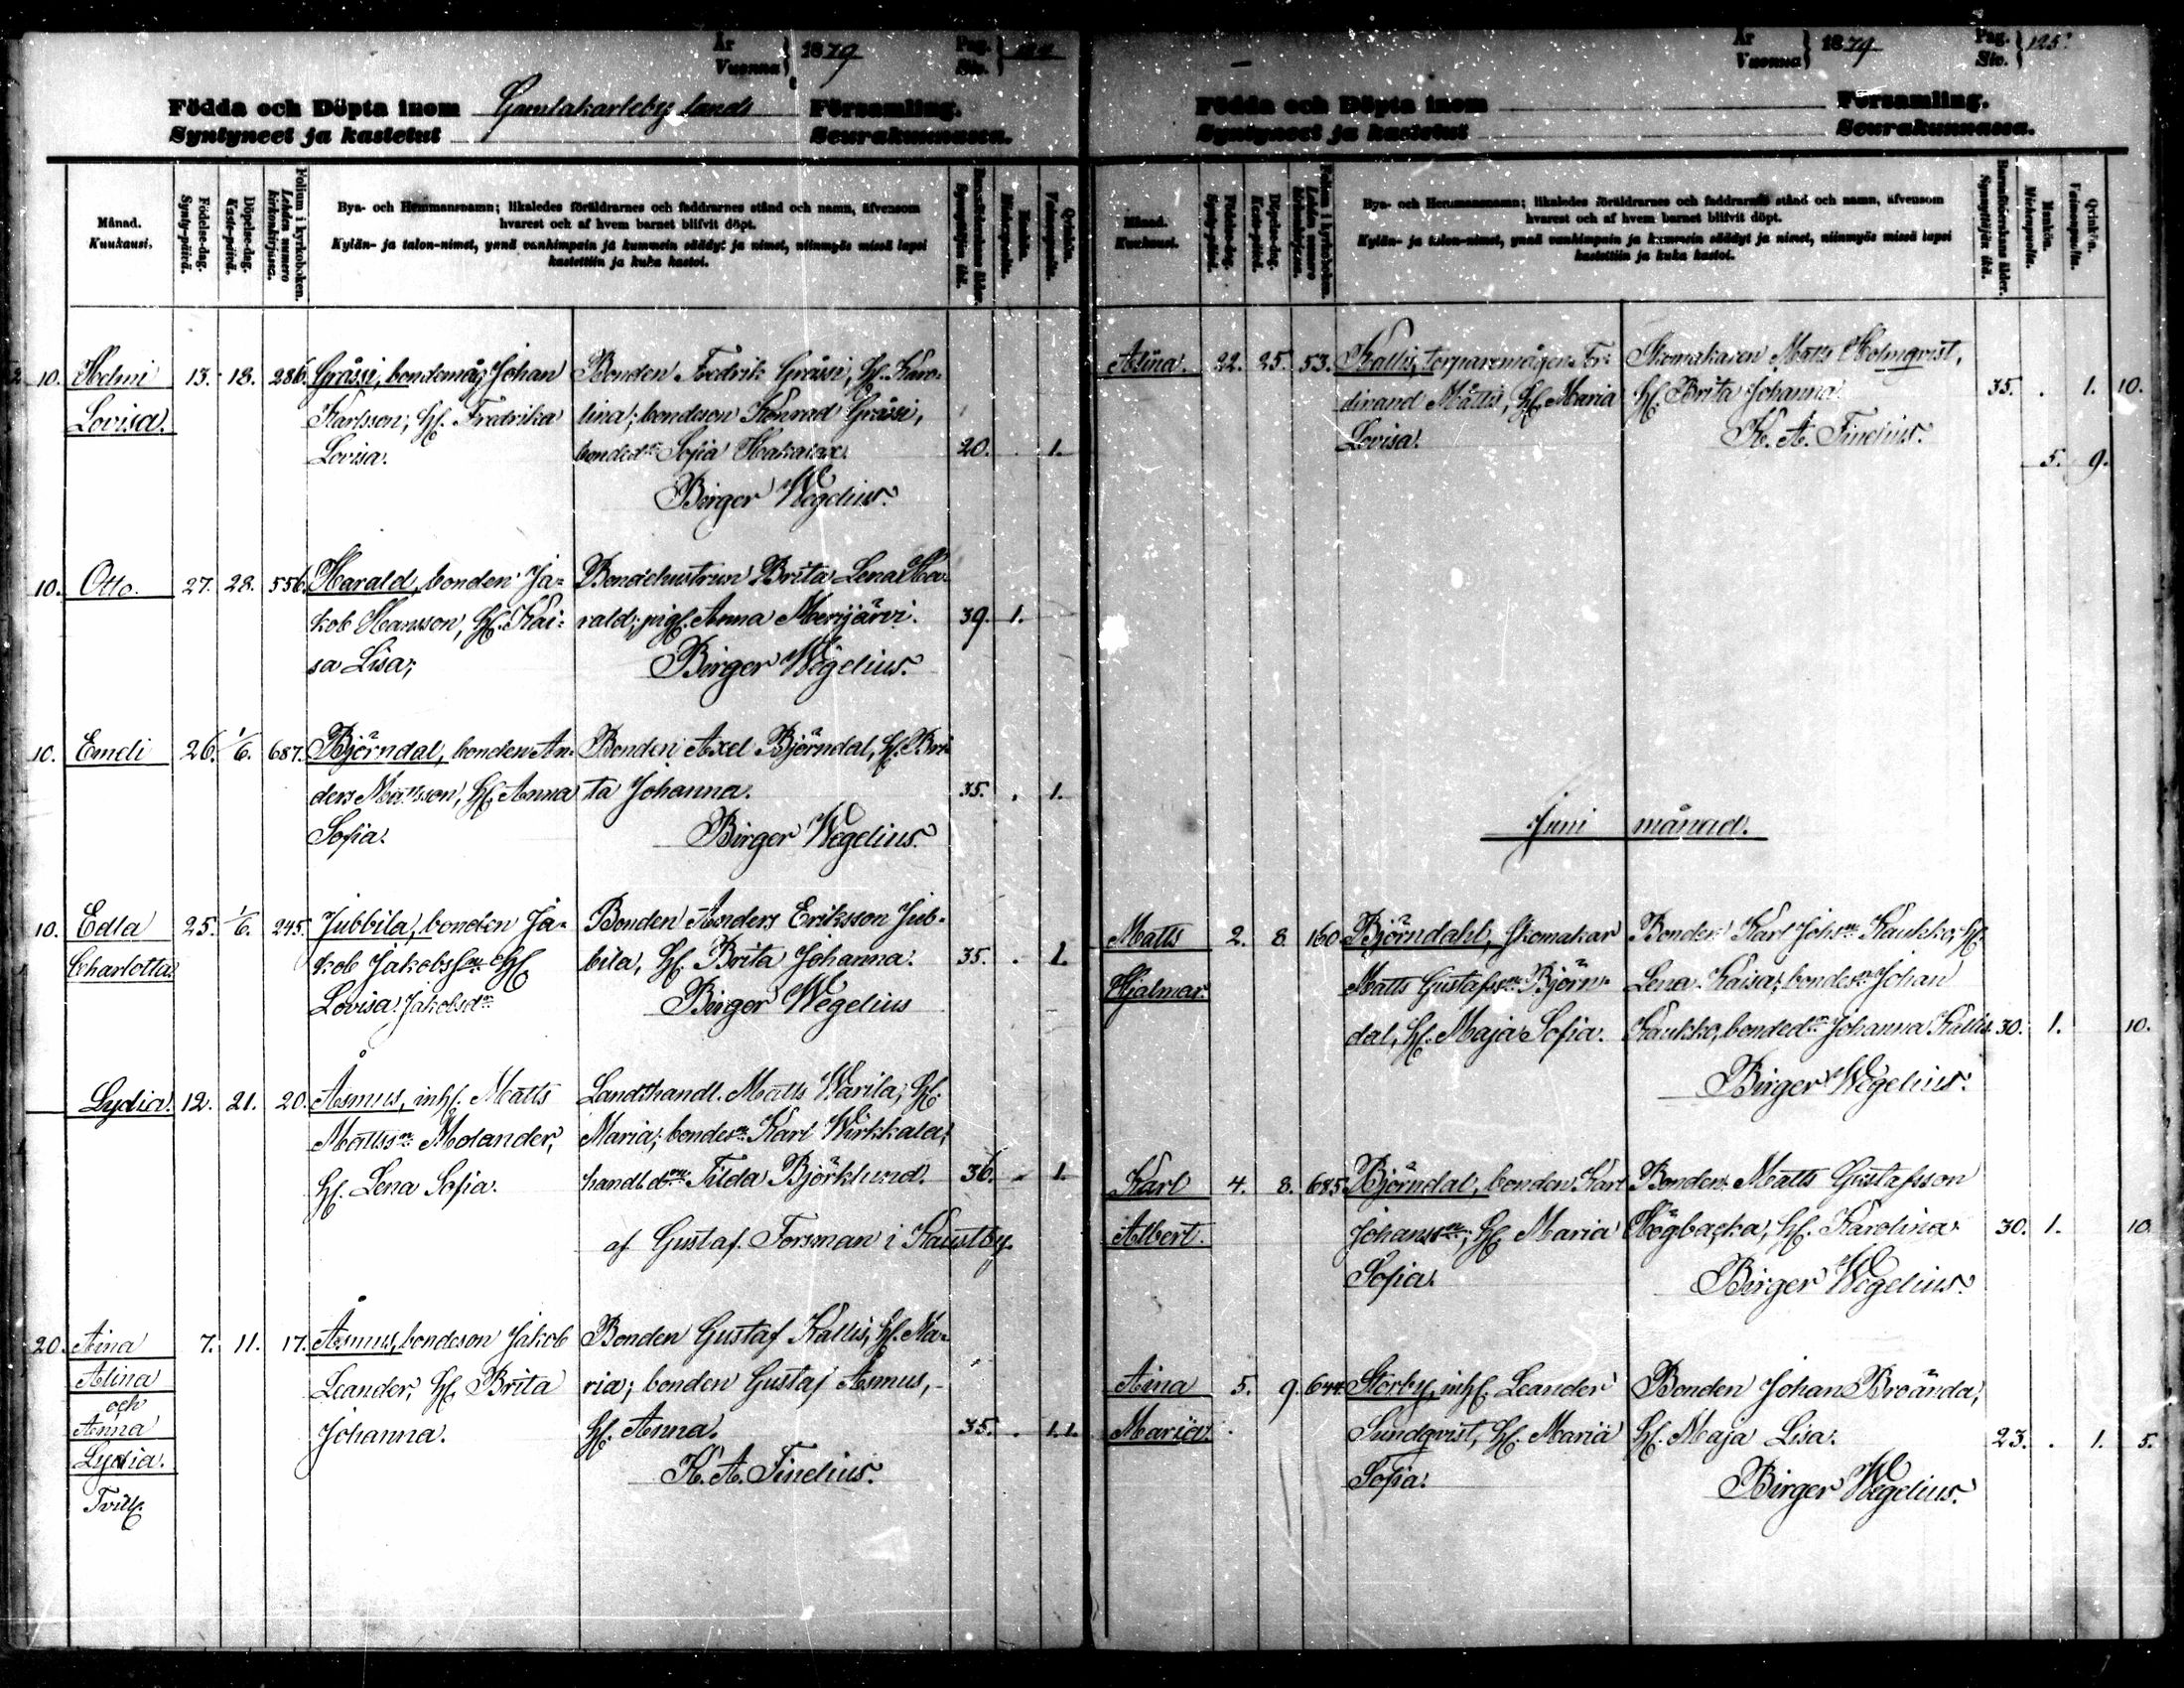 År
Vuonna } 1879
Pag.
Siv.
Födda och Döpta inom Gamlakarleby lands Församling.
Syntyneet ja kastetut Seurakunnassa.
Månad.
Kuukausi.
Födelse-dag.
Synty-päivä.
Döpelse-dag.
Kaste-päivä.
Folium i kyrkoboken.
Lehden numero kirkonkirjassa.
Bya- och Hemmansnamn; likaledes föräldrarnes och faddrarnes stånd och namn, äfvensom
hvarest och af hvem barnet blifvit döpt.
Kylän- ja talon-nimet, ynnä vanhimpain ja kummein säädyt ja nimet, niinmyös missä lapsi
kastettiin ja kuka kastoi.
Barnaföderskans ålder.
Synnyttäjän ikä.
Mankön.
Miehenpuolta.
Qvinkön.
Vaimonpuolta.
10. Helmi 13. 18. 286. Gråssi, bondemåg Johan Bonden Fredrik Gråssi, Hf. Karo-
Lovisa. Karlsson, Hf. Fredrika lina; bondeson Konrad Gråssi,
Lovisa. bonded:r Sofia 20. 1.
Birger Wegelius.
10. Otto. 27. 28. 556. Harald, bonden Ja- Bondehustrun Brita Lena Ha-
kob Hansson, Hf. Kai- rald; pig. Anna Merijärvi. 39. 1.
sa Lisa; Birger Wegelius.
10. Emeli 26. 1/6. 687. Björndal, bonden An- Bonden Axel Björndal, Hf. Bri-
ders Mattsson, Hf. Anna ta Johanna. 35. . 1.
Sofia. Birger Wegelius.
10. Edla 25. 1/6. 245. Jubbila, bonden Ja- Bonden Anders Eriksson Jub-
Charlotta kob Jakobss:n Hf. bila, Hf. Brita Johanna. 35. . 1.
Lovisa Jakobsd:r Birger Wegelius
Lydia. 12. 21. 20. Åsmus, inh. Matts Landthandl. Matts Warila, Hf.
Mattss:n Molander, Maria; bondes:n Karl Wirkkala,
Hf. Lena Sofia. handl.d:rn Tilda Björklund. 36. . 1.
af Gustaf Forsman i Kaustby.
20. Aina 7. 11. 17. Åsmus, bondeson Jakob Bonden Gustaf Kallis, Hf. Ma-
Alina Leander, Hf. Brita ria; bonden Gustaf Åsmus,
och
Anna Johanna. Hf. Anna. 35. . 1.1.
Lydia. K. A. Finelius.
Tvill.
År
Vuonna } 1879
Pag.
Siv. } 125.
Födda och Döpta inom Församling.
Syntyneet ja kastetut Seurakunnassa.
Månad.
Kuukausi.
Födelse-dag.
Synty-päivä.
Döpelse-dag.
Kaste-päivä.
Folium i kyrkoboken.
Lehden numero kirkonkirjassa.
Bya- och Hemmansnamn; likaledes föräldrarnes och faddrarnes stånd och namn, äfvensom
hvarest och af hvem barnet blifvit döpt.
Kylän- ja talon-nimet, ynnä vanhimpain ja kummein säädyt ja nimet, niinmyös missä lapsi
kastettiin ja kuka kastoi.
Barnaföderskans ålder.
Synnyttäjän ikä.
Mankön.
Miehenpuolta.
Qvinkön.
Vaimonpuolta.
Alina. 22. 25. 53. Kallis, torparemågen Fer- Skomakaren Matts Holmqvist,
dinand Mattss, Hf. Maria Hf. Brita Johanna. 35. . 1. 10.
Lovisa. K. A. Finelius.
5. 9.
Juni månad.
Matts 2. 8. 160. Björndahl, skomakar Bonden Karl Johs:n Kaukko, Hf.
Hjalmar. Matts Gustafss:n Björn- Lena Kaisa; bondes:n Johan
dal, Hf. Maja Sofia. Kaukko, bonded:r Johanna Kallis. 30. 1. 10.
Birger Wegelius.
Karl 4. 8. 685. Björndal, bonden Karl Bonden Matts Gustafsson
Albert. Johanss:n, Hf. Maria Högbacka, Hf. Karolina. 30. 1. 10.
Sofia. Birger Wegelius.
Aina 5. 9. 644. Storby, inh. Leander Bonden Johan Broända,
Maria. Sundqvist, Hf. Maria Hf. Maja Lisa. 23. . 1. 5.
Sofia. Birger Wegelius.